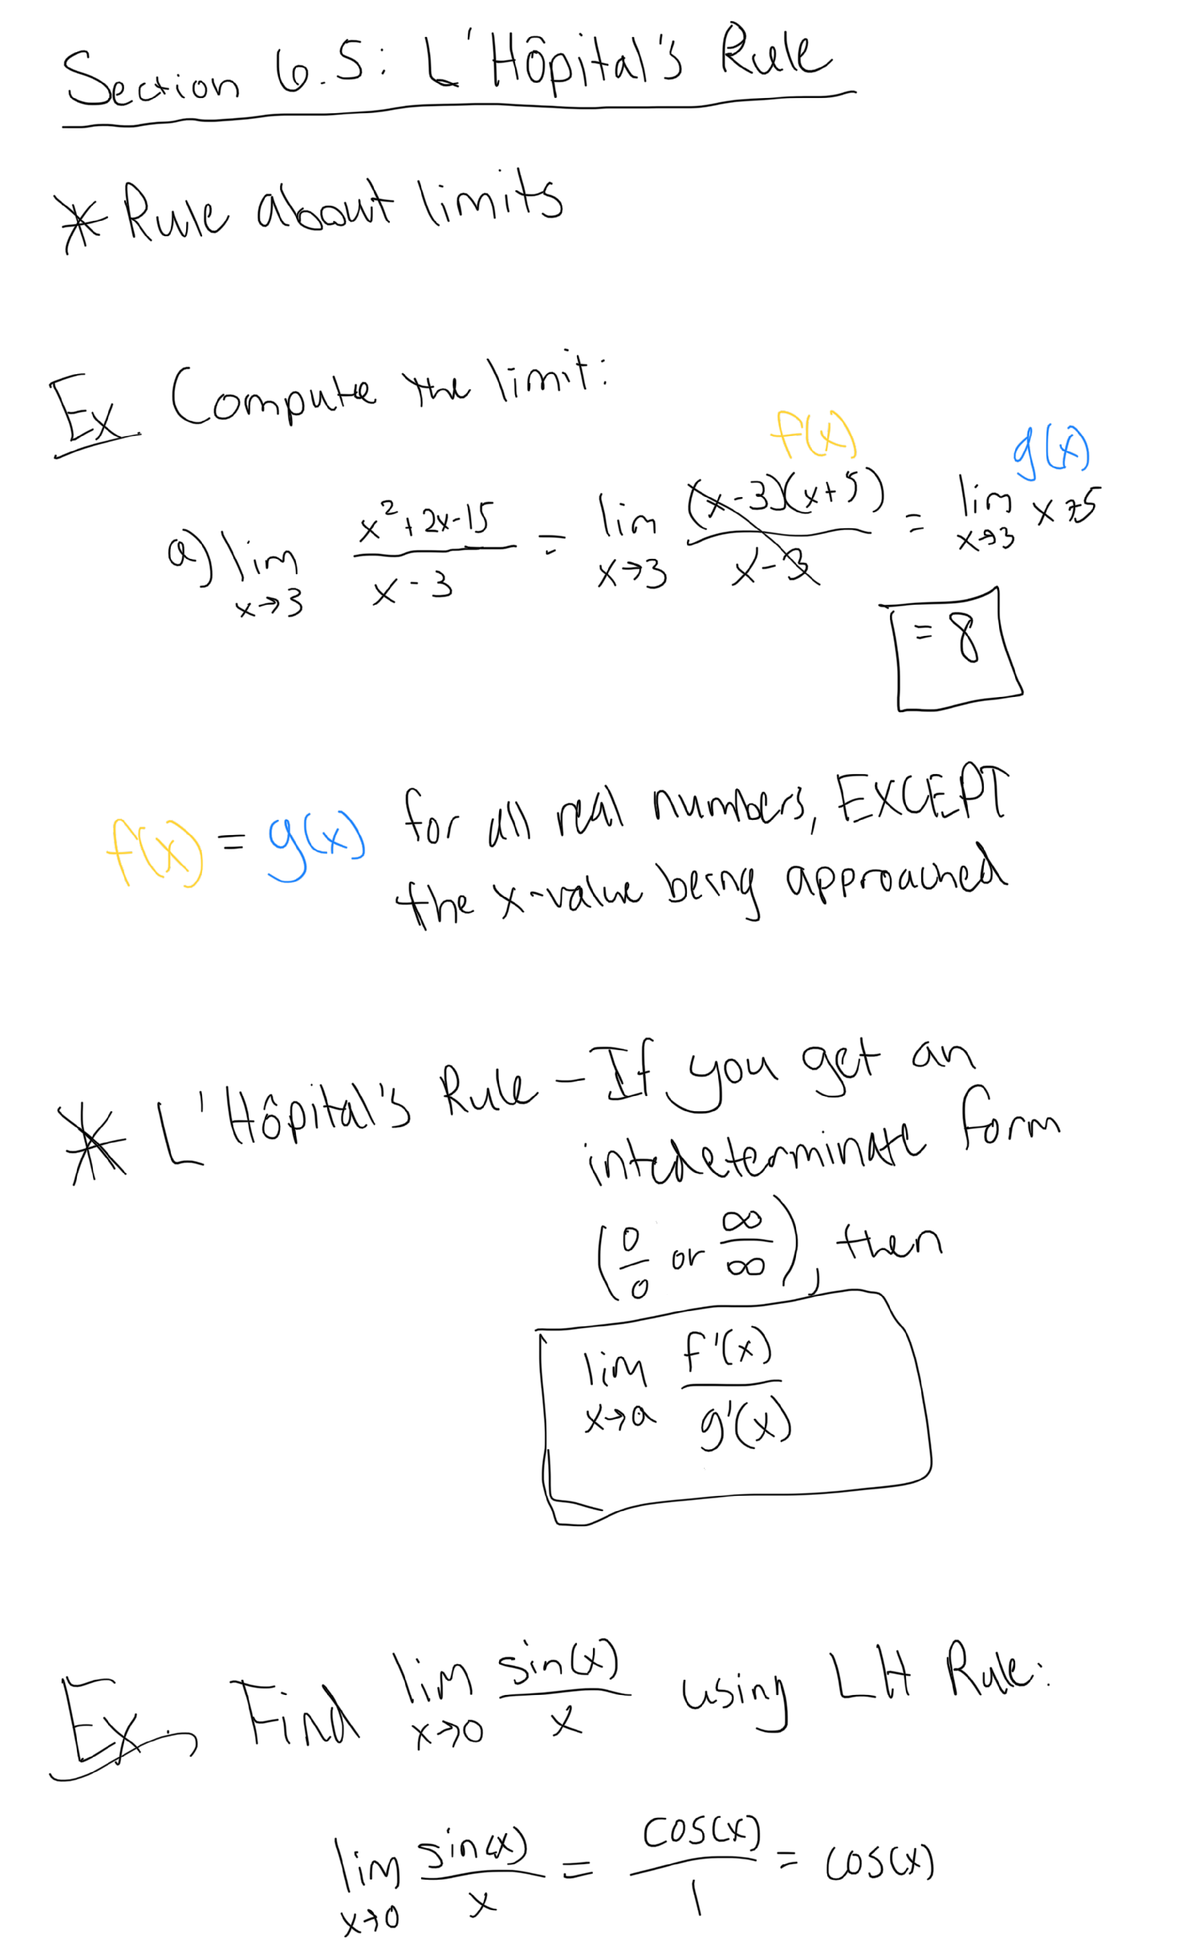 Section 6.5: L'Hôpital's Rule
* Rule about limits
Ex Compute the limit:
f(x) g(x)
a) lim x→3 (x²+2x-15)/(x-3) = lim x→3 ((x-3)(x+5))/(x-3) = lim x→3 x+5
= 8
f(x) = g(x) for all real numbers, EXCEPT
the x-value being approached
* L'Hôpital's Rule - If you get an
intedeterminate form
(0/0 or ∞/∞), then
lim x→a f'(x)/g'(x)
Ex. Find lim x→0 sin(x)/x using LH Rule:
lim x→0 sin(x)/x = cos(x)/1 = cos(x)